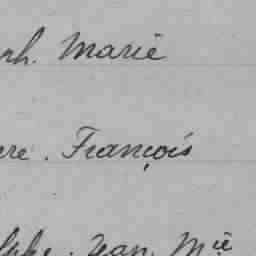 ph. Marie
rre. François
Jean Mie